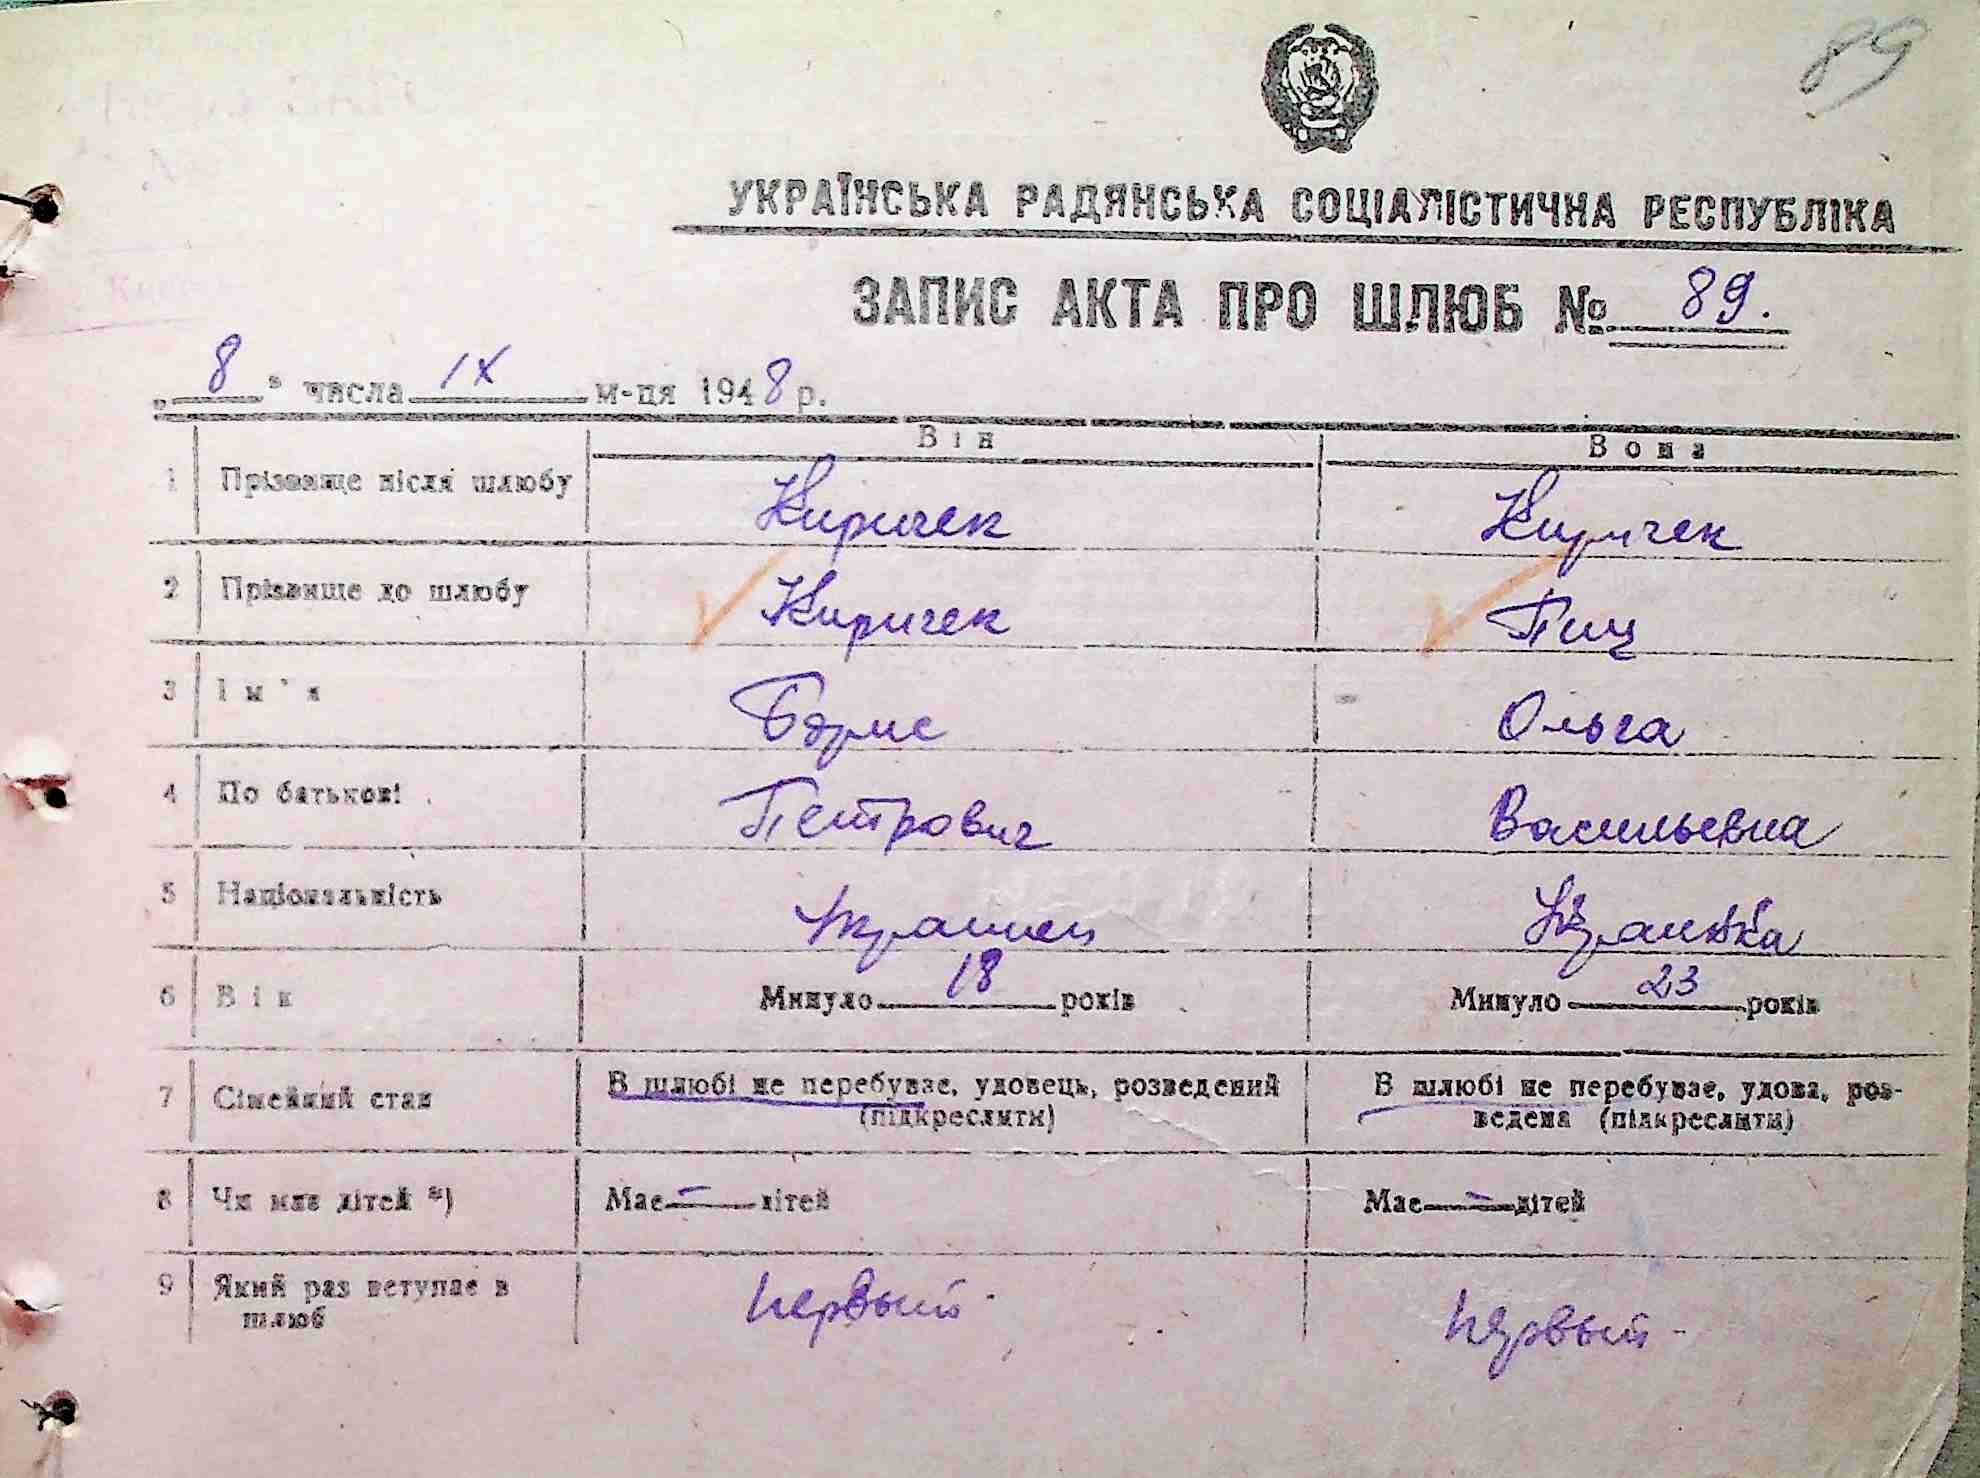 89
УКРАЇНСЬКА РАДЯНСЬКА СОЦІАЛІСТИЧНА РЕСПУБЛІКА
ЗАПИС АКТА ПРО ШЛЮБ № 89.
„8" числа IX м-ця 1948 р.
Він Вона
1 Прізвище після шлюбу Киричек Киричек
2 Прізвище до шлюбу Киричек Пищ
3 Ім'я Борис Ольга
4 По батькові Петрович Васильевна
5 Національність Украинец
6 Вік Минуло 18 років Минуло 23 років
7 Сімейний стан В шлюбі не перебуває, удовець, розведений В шлюбі не перебуває, удова, роз-
(підкреслити) ведена (підкреслити)
8 Чи має дітей *) Має — дітей Має — дітей
9 Який раз вступає в первый первый
шлюб